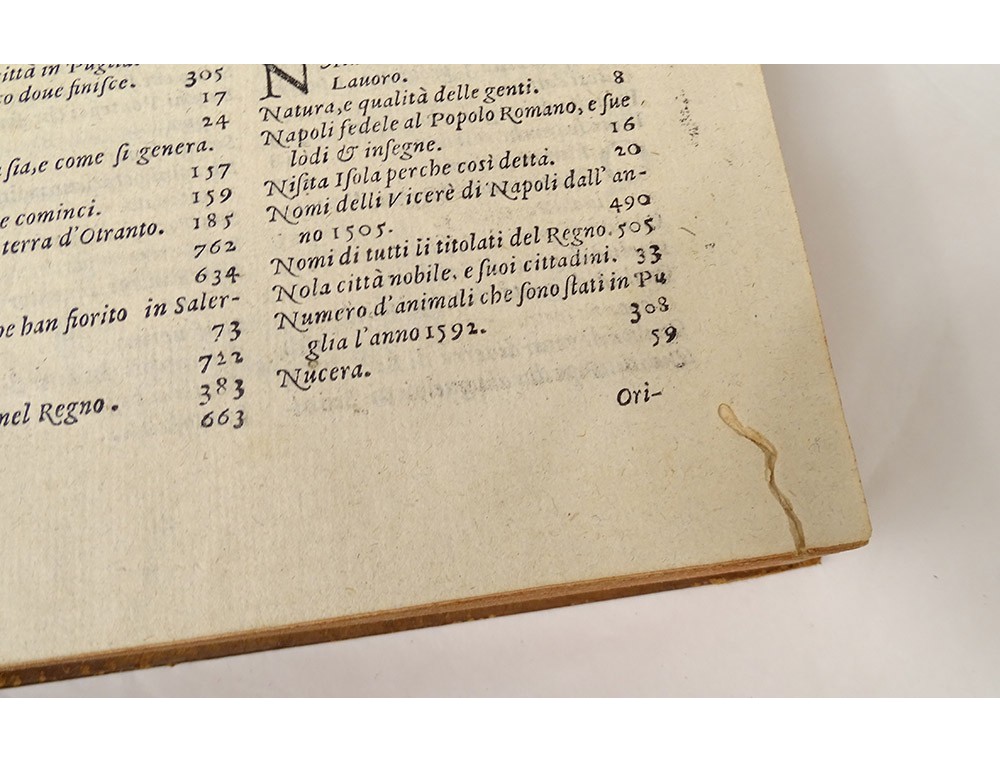 città in Puglia.
o doue finisce. 305
17
24
ſia, e come ſi genera.
157
e cominci. 159
terra d'Otranto. 185
762
634
han fiorito in Saler-
73
722
383
nel Regno. 663
N
Lauoro. 8
Natura, e qualità delle genti.
Napoli fedele al Popolo Romano, e ſue
lodi & inſegne. 16
Niſita Iſola perche così detta. 20
Nomi delli Vicerè di Napoli dall' an-
no 1505. 490
Nomi di tutti ii titolati del Regno. 505
Nola città nobile, e ſuoi cittadini. 33
Numero d'animali che ſono ſtati in Pu
glia l'anno 1592. 308
Nucera. 59
Ori-